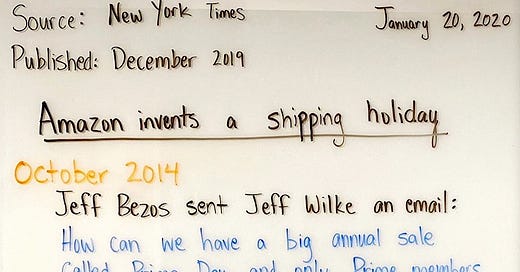 Source: New York Times
January 20, 2020
Published: December 2019
Amazon invents a shipping holiday
October 2014
Jeff Bezos sent Jeff Wilke an email:
How can we have a big annual sale
called Prime Day and only Prime members